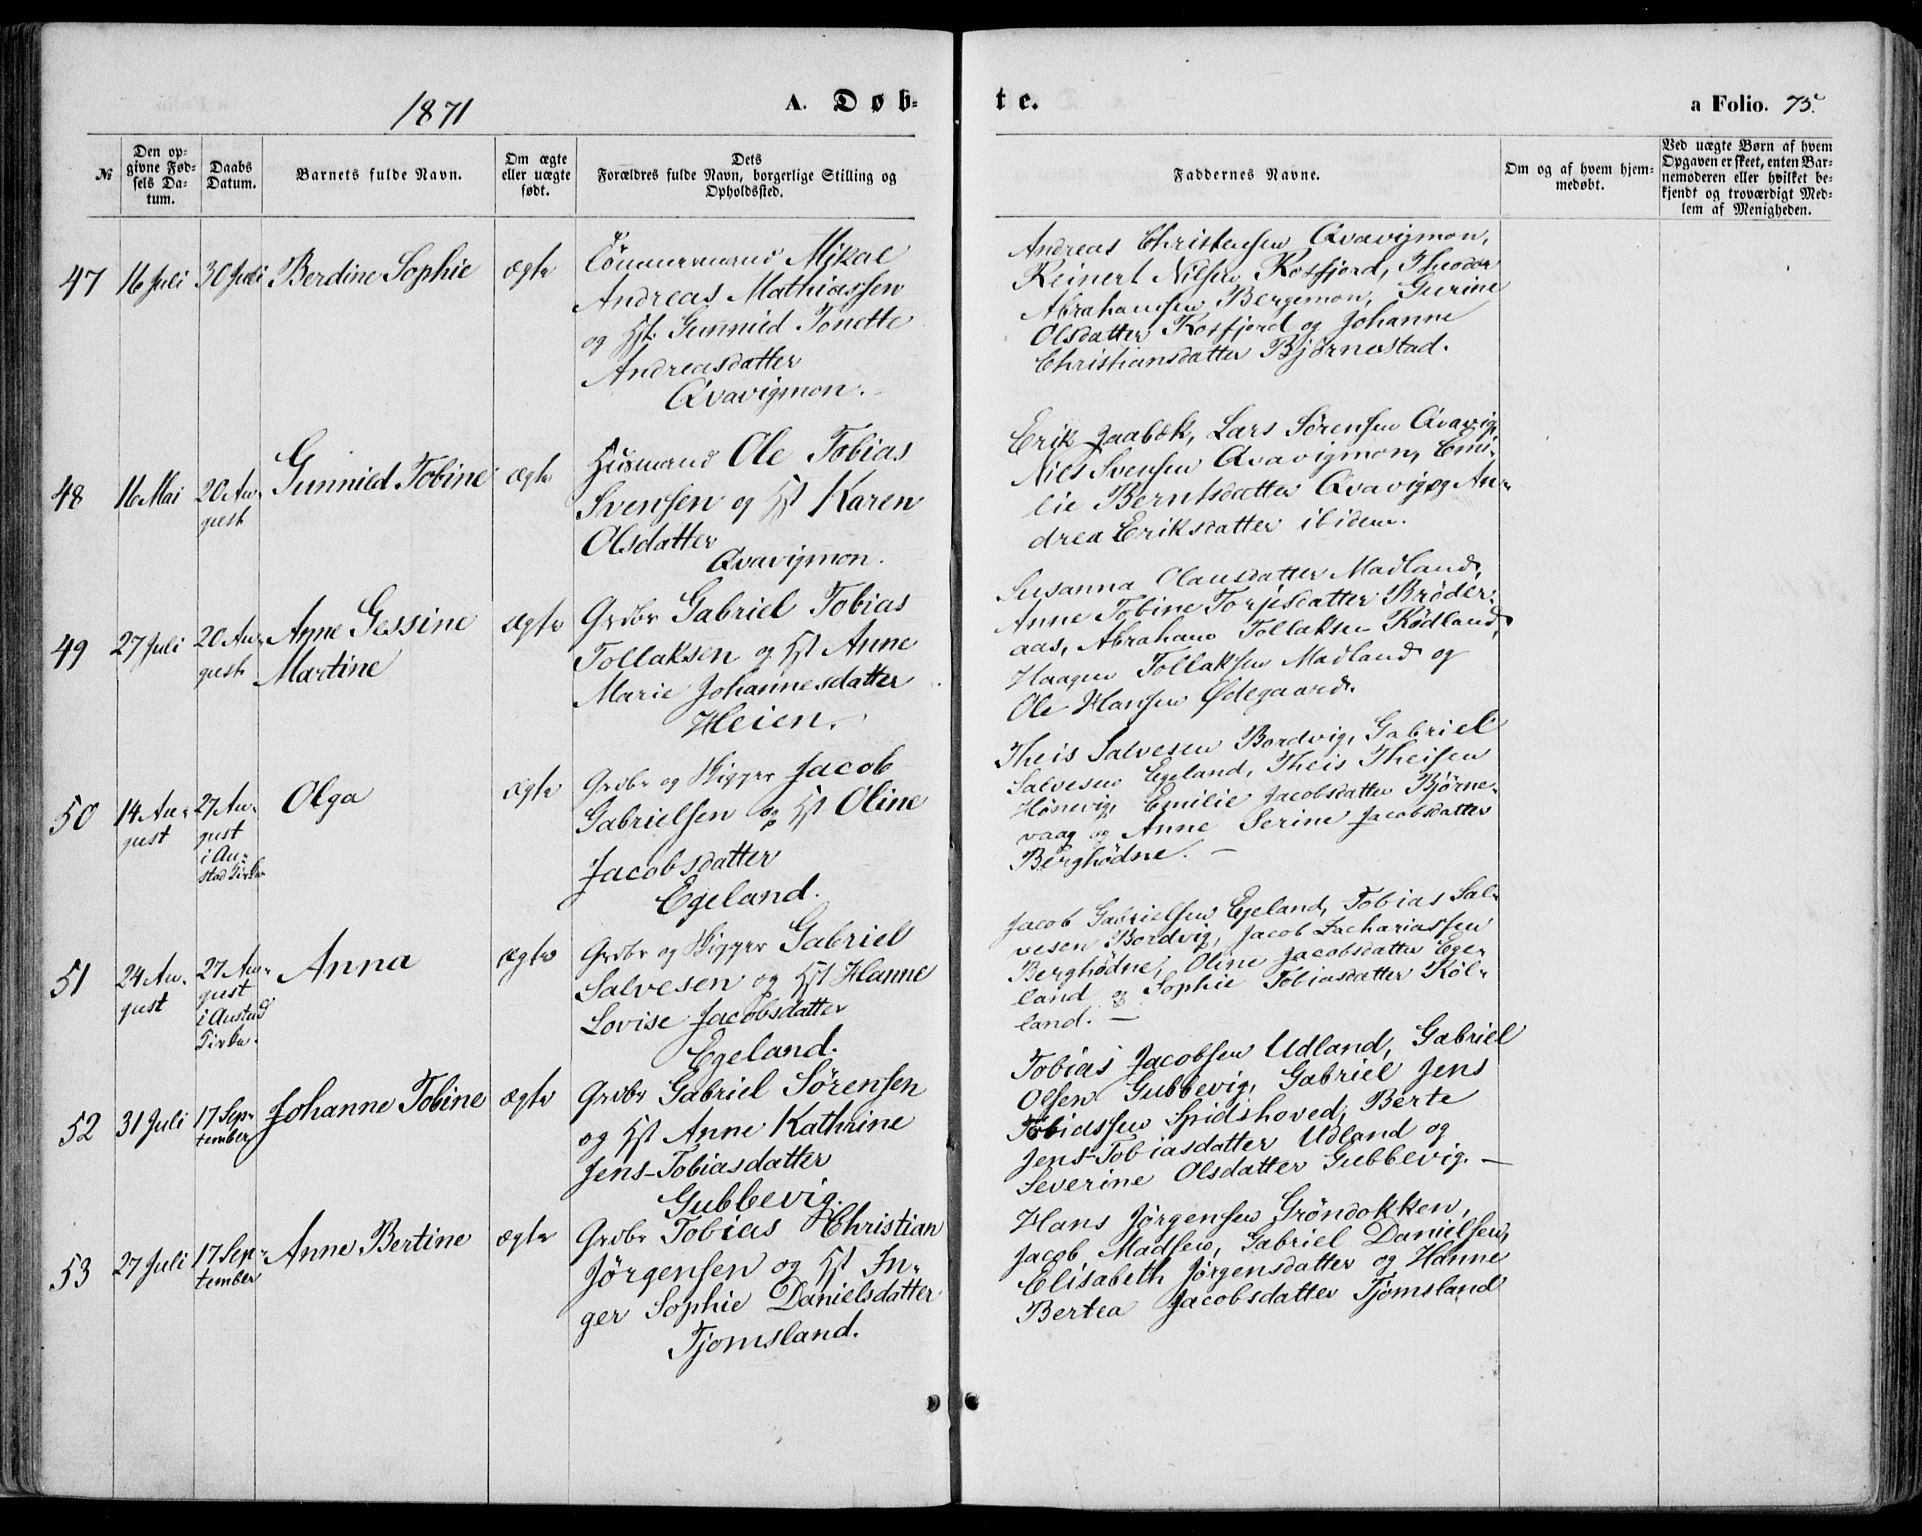 1871
A. Døb-
te.
a Folio. 75.
№
Den op-
givne Fød-
sels Da-
tum.
Daabs
Datum.
Barnets fulde Navn.
Om ægte
eller uægte
født.
Dets
Forældres fulde Navn, borgerlige Stilling og
Opholdssted.
Faddernes Navne.
Om og af hvem hjem-
medøbt.
Ved uægte Børn af hvem
Opgaven er skeet, enten Bar-
nemoderen eller hvilket be-
kjendt og troværdigt Med-
lem af Menigheden.
47 16 Juli 30 Juli Berdine Sophie ægte
Tömmermand Mikal
Andreas Mathiassen
og Hst. Gunnild Tonette
Andreasdatter
Qvavigmon.
Andreas Christensen Qvavigmon,
Reinert Nilsen Kosfjord, Theodor
Abrahamsen Bergemon, Gurine
Olsdatter Kosfjord og Johanne
Christiansdatter Bjørnestad.
48 16 Mai 20 Au-
gust
Gunnild Tobine ægte
Husmand Ole Tobias
Svensen og Hst Karen
Olsdatter
Qvavigmon.
Erik Jaabæk, Lars Sørensen Qvavig,
Nils Svensen Qvavigmon, Emi-
lie Berntsdatter Qvavig og An-
drea Eriksdatter ibidem.
49 27 Juli 20 Au-
gust
Anne Gessine
Martine
ægte
Grdbr Gabriel Tobias
Tollaksen og Hst Anne
Marie Johannesdatter
Heien.
Susanna Olausdatter Madland,
Anne Tobine Torjesdatter Brøder-
aas, Abraham Tollaksen Rødland,
Haagen Tollaksen Madland og
Ole Hansen Ødegaard.
50 14 Au-
gust
27 Au-
gust
i Au-
stad Kirke
Olga ægte
Grdbr og Skipper Jacob
Gabrielsen og Hst Oline
Jacobsdatter
Egeland.
Theis Salvesen Bordvig, Gabriel
Salvesen Egeland, Theis Theisen
Hönevig, Emilie Jacobsdatter Bjørne-
vaag og Anne Serine Jacobsdatter
Berghødne. —
51 24 Au-
gust
27 Au-
gust
i Austad
Kirke.
Anna ægte
Grdbr og Skipper Gabriel
Salvesen og Hst Hanne
Lovise Jacobsdatter
Egeland.
Jacob Gabrielsen Egeland, Tobias Sal-
vesen Bordvig, Jacob Zachariassen
Berghødne, Oline Jacobsdatter Ege-
land og Sophie Tobiasdatter Røl-
land. —
52 31 Juli 17 Sep-
tember
Johanne Tobine ægte
Grdbr Gabriel Sørensen
og Hst Anne Kathrine
Jens-Tobiasdatter
Gubbevig.
Tobias Jacobsen Udland, Gabriel
Olsen Gubbevig, Gabriel Jens
Tobiassen Spidshoved, Berte
Jens-Tobiasdatter Udland og
Severine Olsdatter Gubbevig. —
53 27 Juli 17 Sep-
tember
Anne Bertine ægte
Grdbr Tobias Christian
Jørgensen og Hst In-
ger Sophie Danielsdatter
Tjomsland.
Hans Jørgensen Grøndokken,
Jacob Madsen, Gabriel Danielsen,
Elisabeth Jørgensdatter og Hanne
Bertea Jacobsdatter Tjomsland